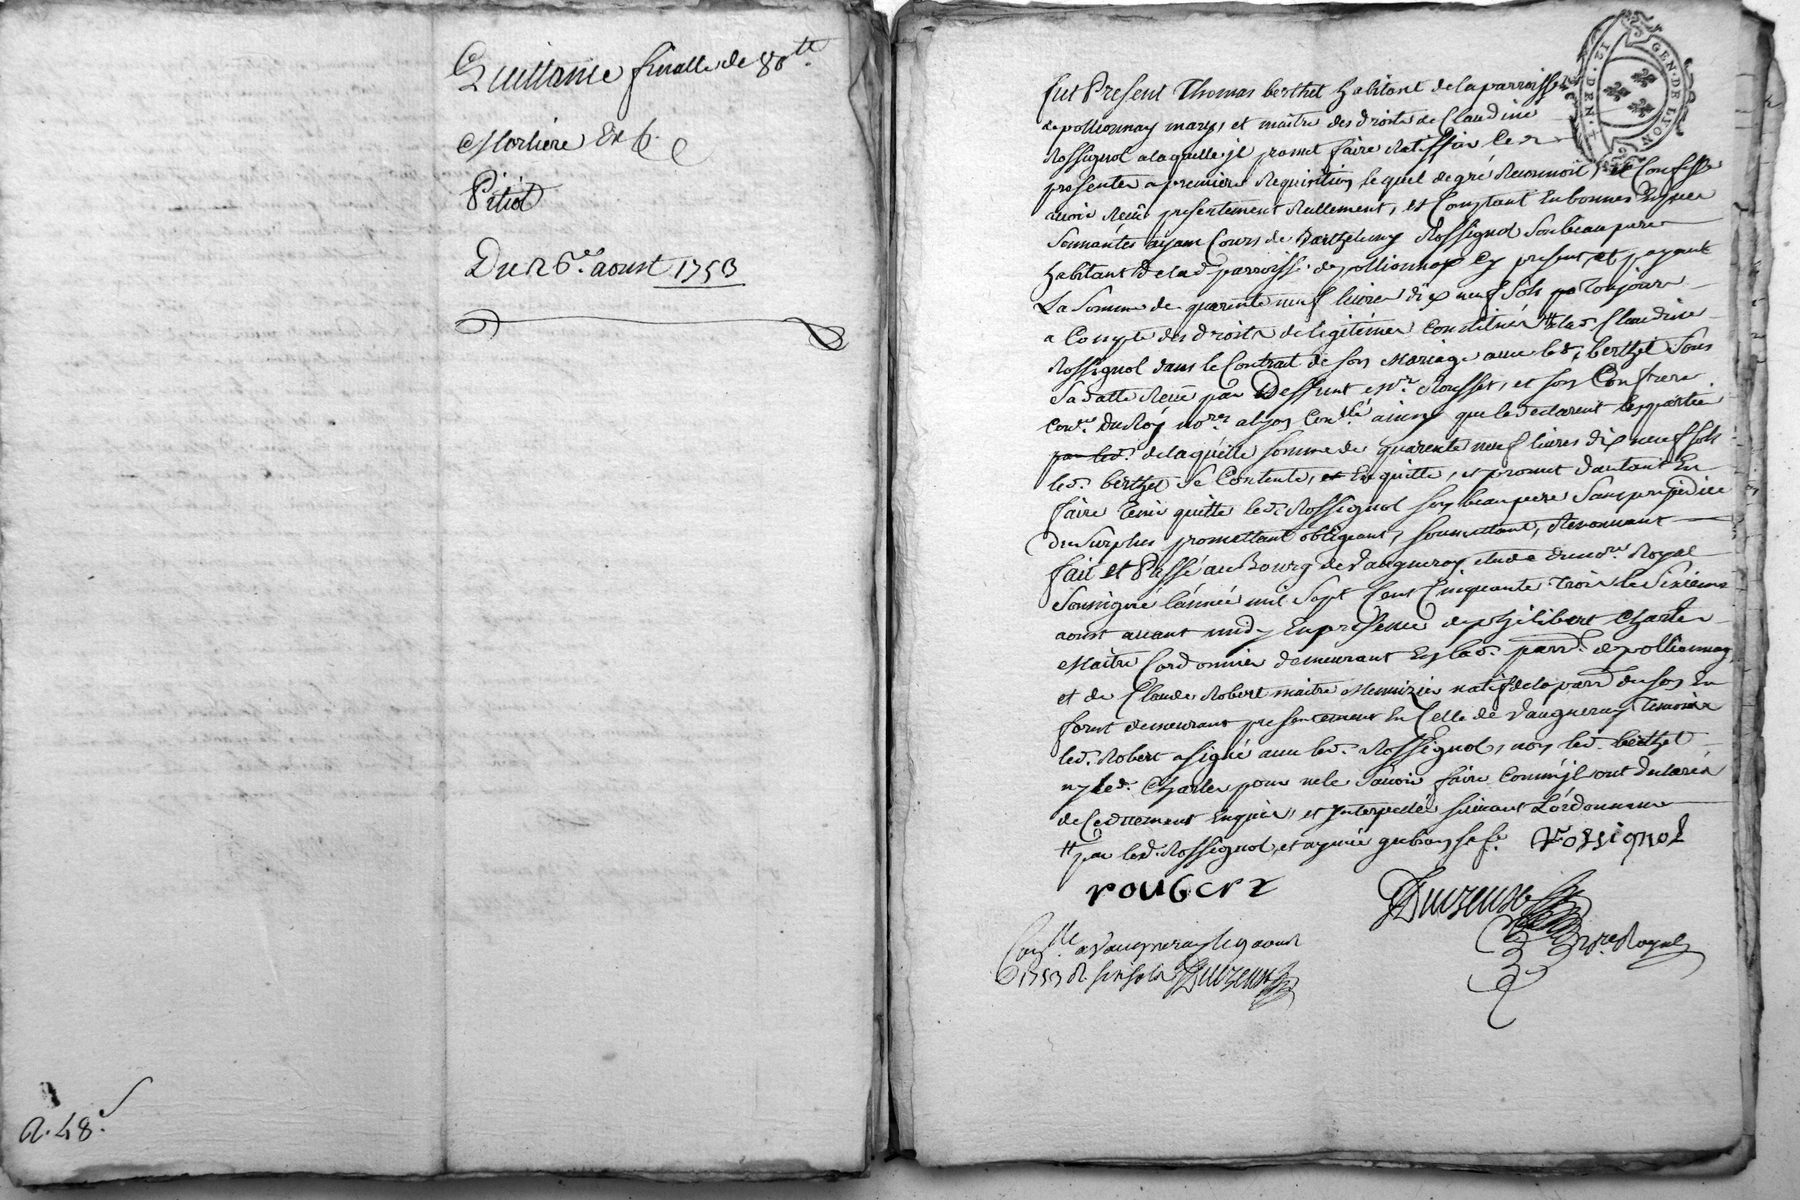 Quittance finalle de 80 ᵗᵗ
Morliere Et
Pitiot
Du 26.e aoust 1753
R. 48.s
GEN. DE LYON
12. DEN.
fut Présent Thomas berthet habitant de la parroisse
de pollionnay mary, et maitre des droits de Claudine
Rossignol a laquelle jl promet faire Ratiffier Ces
presentes a premiere Requisition, lequel de gré Reconnoit, et Confesse
avoir Reçû presentement Réellement, et Comptant En bonnes Especes
Sonnantes ayant Cours de Barthelemy Rossignol Son beau pere
habitant de lad. parroisse de pollionnay Cy present, et payant
La Somme de quarente neuf livres dix neuf sols Toujours
a Compte des droits de legitimes Constitués ᵗᵗ a lad. Claudine
Rossignol dans le Contrat de son Mariage avec led. berthet Sous
Sa datte Reçû par Deffunt me. Rousset, et son Confrere
Con.rs Du Roy no.res a Lyon Con.llé ainsy que le declarent les parties
par led. de laquelle somme de quarente neuf livres dix neuf sols
led. berthet Se Contente, et En quitte, et promet d'autant En
faire Tenir quitte led. Rossignol son beau pere Sans prejudice
Du Surplus promettant obligeant, soumettant, Renonçant
fait et Passé au Bourg de Vaugneray etude du no.re Royal
Soussigné l'année mil Sept Cent Cinquante trois le Sixieme
aoust avant midy En presence de philibert Charles
Maitre Cordonnier demeurant En lad. parr. de pollionnay
et de Claude Robert maitre Menuizier natif de la parr. de
forest demeurant presentement En Celle de Vaugneray Temoins
led. Robert a signé avec led. Rossignol, non led. berthet
ny led. Charles pour ne le Sçavoir faire Comm'jl ont declarés
de Ce düement Enquis, et Interpellés suivant L'ordonnance
ᵗᵗ par led. Rossignol, et
Rossignol
roubert
Duvzeuse
No.re Royal
Con.llé a Vaugneray le 19 aoust
1753 R. six sols Duvzeuse